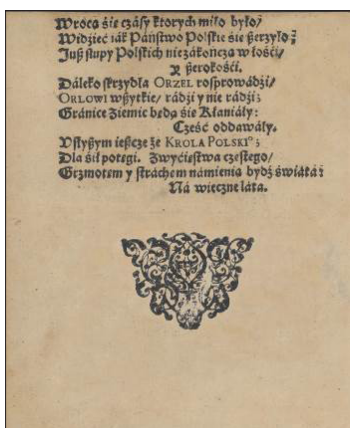 Wrócą śie czásy ktorych miło było/
Widźieć iák Páństwo Polskie śie szerzyło:
Iuż słupy Polskich nie zákończą włośći/
Y szerokośći.
Dáleko skrzydłá ORZEL rosprowádźi/
ORLOWI wszytkie/ rádźi y nie rádźi:
Gránice Ziemie będą śie kłániáły:
Cześć oddawáły.
Vsłyszym ieszcze że KROLA POLSKIᵒ:
Dla śił potęgi. Zwyćięstwa częstego/
Grzmotem y stráchem námienią bydź świátá:
Ná wieczne látá.